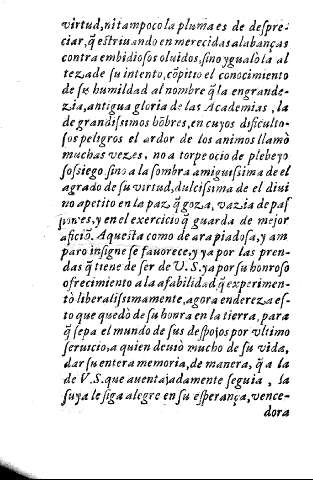 virtud, ni tampoco la pluma es de despre-
ciar, q̃ estriuando en merecidas alabanças
contra embidiosos oluidos, sino yguaſò la al
teza de su intento, cõpitio el conocimiento
de su humildad al nombre q̃ la engrande-
zia, antigua gloria de las Academias, la
de grandissimos hõbres, en cuyos difficulto-
sos peligros el ardor de los animos llamò
muchas vezes, no a torpe ocio de plebeyo
sossiego sino a la sombra amiguissima de el
agrado de su virtud, dulcissima de el diui
no apetito en la paz q̃ goza, vazia de pas
siones, y en el exercicio q̃ guarda de mejor
aficiõ. Aquesta como de ara piadosa, y am
paro insigne se fauorece, y ya por las pren-
das q̃ tiene de ser de V.S. ya por su honroso
ofrecimiento a la afabilidad q̃ experimen-
tò liberalissimamente, agora endereza es-
to que quedò de su honra en la tierra, para
q̃ sepa el mundo de sus despojos por vltimo
seruicio, a quien deuiò mucho de su vida,
dar su entera memoria, de manera, q̃ a la
de V.S. que auentajadamente seguia, la
suya le siga alegre en su esperança, vence-
dora